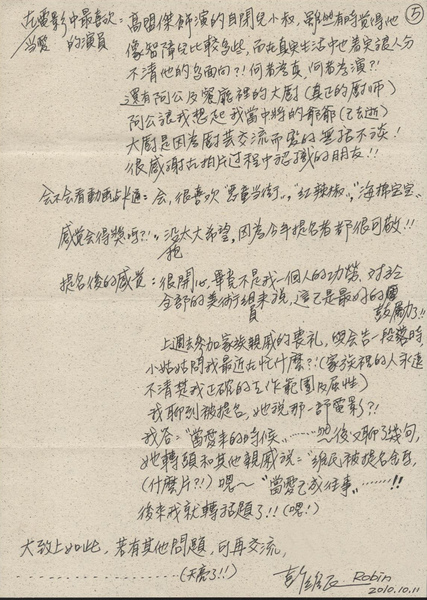 ⑤
在電影中最喜歡、當愛的演員：高盟傑飾演的自閉兒小叔，雖然有時覺得他
像智障兒比較多些，而在真實生活中也著實讓人分
不清他的多面向？！何者為真，何者為演？！
還有阿公及客廳裡的大廚（真正的廚師）
阿公讓我想起我當中將的爺爺（已去逝）
大廚是因為廚芸交流而客的無話不談！
很感謝在拍片过程中認識的朋友！！
会不会看動画卡通：会，很喜歡"惡童当街"，"紅辣椒"，"海綿宝宝
感觉会得獎嗎？！：没抱太大希望，因為今年提名者都很可敬！！
提名後的感覺：很開心，畢竟不是我一個人的功勞，对於
全部的美術組員來說，這已是最好的
鼓勵了！！
上週去參加家族親戚的喪礼，喫会告一段落時，
小姑姑問我最近在忙什麼？！（家族裡的人永遠
不清楚我正確的工作範圍及屬性）
我聊到被提名，她說那一部電影？！
我答："當愛來的時候"……然後又聊了幾句，
她轉頭和其他親戚說："維民被提名金馬，
（什麼片？！）嗯～"當愛已成往事"……！！
後來我就轉話題了！！（嗯！）
大致上如此，若有其他問題，可再交流，
（天亮了！！）
彭維民 Robin
2010.10.11